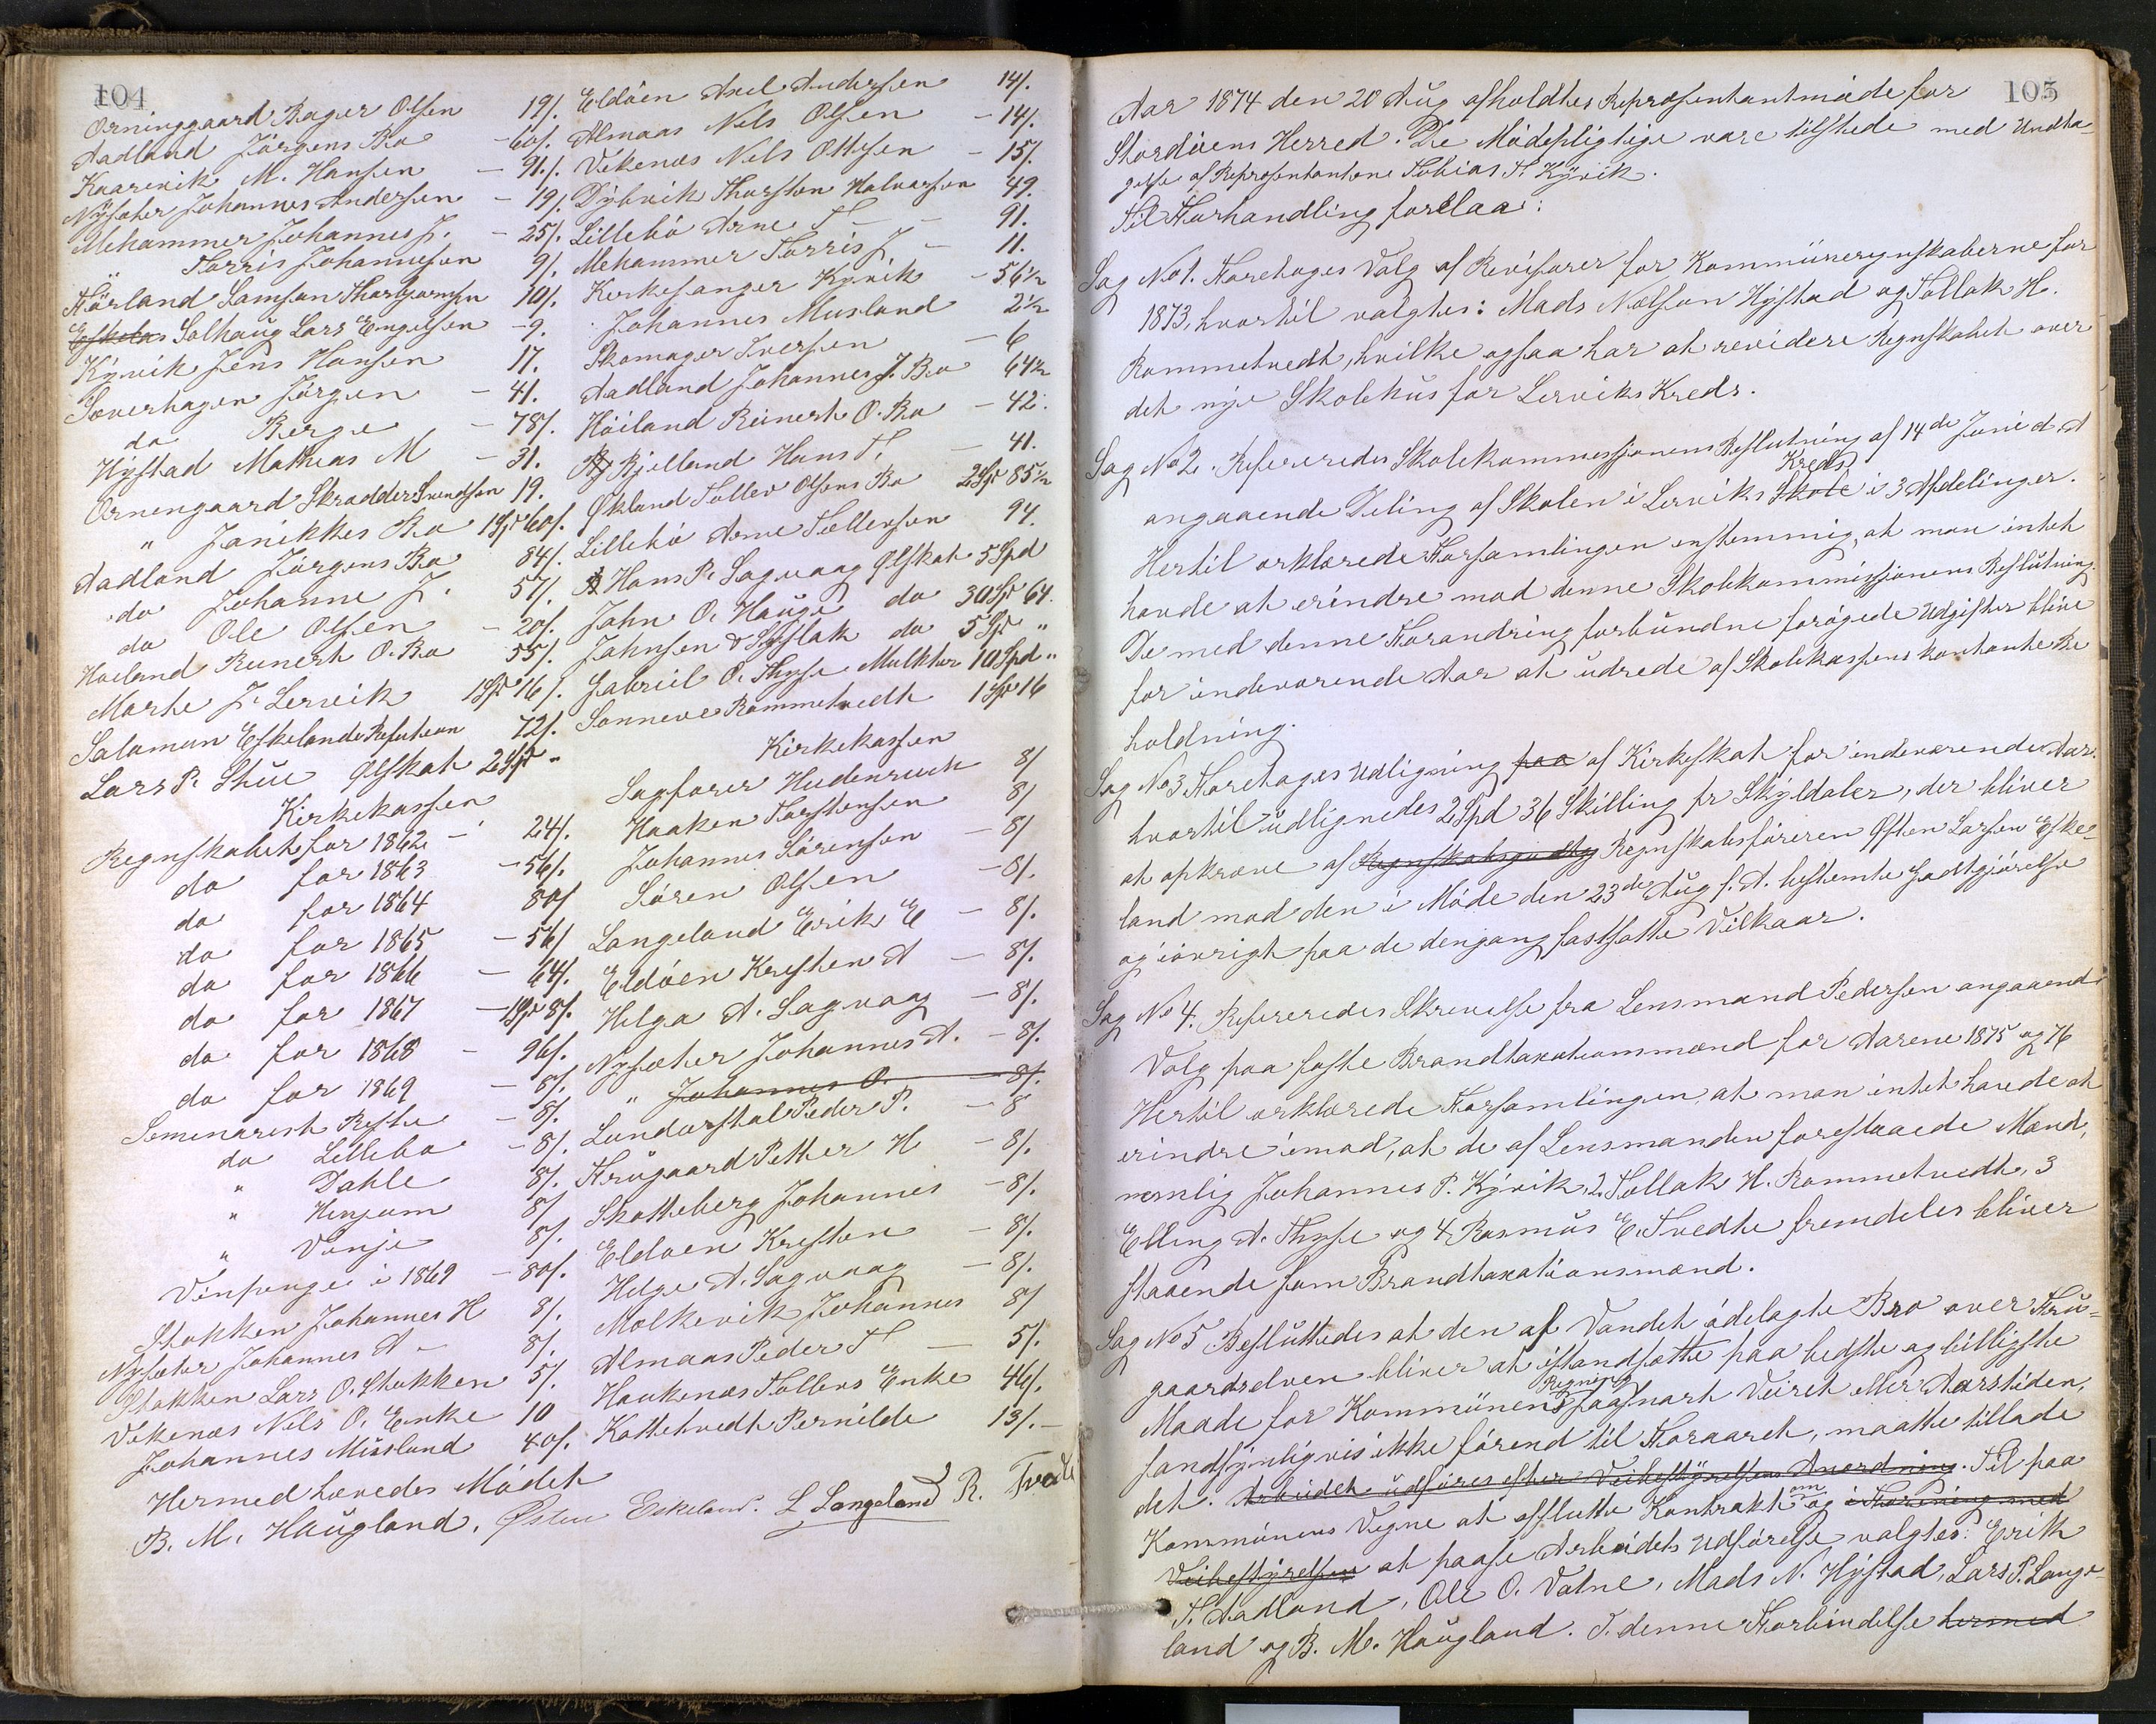 104
Orninggaard Bager Olsen 19/.
Aadland Jörgens Bo - 60/.
Kaarevik M. Hansen - 91/.
Nÿsæter Johannes Andersen - 19/.
Mehammer Johannes J. - 25/.
" Torris Johannesen 9/.
Hörland Samson Thorbjørnsen 10/.
Eskelan Solhaug Lars Engelsen - 9.
Kÿvik Jens Hansen 17.
Sæverhagen Jörgen - 41.
do Berge - 78/.
Hÿstad Mathias M - 31.
Ornengaard Skrædder Svendsen 19.
" Janikkes Bo 1Spd 60/.
Aadland Jörgens Bo 84/.
do Johanne J. 57/.
do Ole Olsen - 20/.
Hoeland Reinert O. Bo 55/.
Marte J. Lervik 1Spd 16/.
Salamon Eskelands Resteration 72/.
Lars P. Stue Ølskat 2Spd "
Kirkekassen
Regnskabet for 1862 - 24/.
do for 1863 - 56/.
do for 1864 80/
do for 1865 - 56/
do for 1866 - 64/.
do for 1867 - 1Spd 8/.
do for 1868 - 96/.
do for 1869 - 8/.
Seminarist Røste - 8/.
do Lillebø - 8/.
" Dahle 8/.
" Henjum 8/
" Vinje 8/.
Vinpenge i 1869 - 80/.
Stokken Johannes H 8/.
Nysæter Johannes A - 8/.
Stokken Lars O. Stokken 5/.
Vekenæs Nels O. Enke 10
Johannes Misslund 40/.
Hermed hævedes Mödet
B. M. Haugland. Østen Eskeland. L Langeland R. Tvedte
Eldöen Axel Andersen 14/.
Almaas Nels Olsen - 14/.
Vekenæs Nels Ottesen - 15/.
Dÿbvik Thorsten Halvorsen 49.
Lillebö Arne T - 91.
Mehammer Torris J - 11.
Kirkesanger Kyvik - 56½
Johannes Musland 2½
Skomager Iversen - 6
Aadland Johannes J. Bo 64½
Höiland Reinert O. Bo - 42.
Bj Bjelland Hans T. - 41.
Økland Tollev Olsens Bo 2Spd 85½
Lillebö Arne Tollevsen 94.
Hans P. Sagvaag Ølskat 5 Spd
John O. Hauge do 30Spd 64.
Johnsen & Tyslak do 5Spd "
Gabriel O. Thyse Mulkter 10 Spd "
Sonneve Rommetvedt 1Spd 16
Kirkekassen
Sagförer Hudenruck 8/
Haaken Torstensen 8/
Johannes Sörensen - 8/
Sören Olsen - 8/.
Langeland Erik E - 8/.
Eldöen Kresten A - 8/.
Helga A. Sagvaag - 8/.
Nysæter Johannes A. - 8/.
" Johannes O. - 8/.
Lundarstøl Peder P. - 8
Frugaard Petter H - 8/.
Skotteberg Johannes - 8/.
Eldøen Kresten - 8/.
Helge A. Sagvaag - 8/.
Molkevik Johannes 8/
Almaas Peder T - 5/.
Haukenæs Tollevs Enke 46/.
Kattetvedt Pernilde 13/.
105
Aar 1874 den 20 Aug afholdtes Repræsentantmöde for
Stordöens Herred. De Mödepligtige vare tilstede med Undta-
gelse af Repræsentantene Tobias T. Kÿvik.
Til Forhandling forelaa:
Sag No 1. Foretoges Valg af Revisorer for Kommuneregnskaberne for
1873, hvortil valgtes: Mads Nelson Hÿstad og Tollak H.
Rommetvedt, hvilke ogsaa har at revidere Regnskabet over
det nye Skolehus for Lerviks Kreds.
Sag No 2. Refereredes Skolekommissionens Beslutning af 14de Juni d. A
angaaende Deling af Skolen i Lerviks Skole Kreds i 3 Afdelinger.
Hertil erklærede Forsamlingen enstemmig, at man intet
havde at erindre mod denne Skolekommissionens Beslutning.
De med denne Forandring forbundne forögede Udgifter blive
for indeværende Aar at udrede af Skolekassens kontante Be
holdning.
Sag No 3 Foretoges Udligning paa af Kirkeskat for indeværende Aar.
hvortil udlignedes 2 Spd 36 Skilling pr Skÿldaler, der bliver
at opkræve af Regnskabsgodtg Regnskabsföreren Østen Larsen Eske-
land mod den i Möde den 23de Aug f. A. bestemte Godtgjörelse
og iövrigt paa de dengang fastsatte Vilkaar.
Sag No 4. Refereredes Skrivelse fra Lensmand Pedersen angaaende
Valg paa faste Brandtaxationsmænd for Aarene 1875 og 76
Hertil erklærede Forsamlingen, at man intet havde at
erindre imod, at de af Lensmanden foreslaaede Mænd,
nemlig Johannes P. Kÿvik, 2. Tollak H. Rommetvedt, 3
Elling A. Thyse og 4. Rasmus E. Tvedte fremdeles bliver
staaende som Brandtaxationsmænd.
Sag No 5 Besluttedes at den af Vandet ödelagte Bro over Fru-
gaardselven bliver at istandsætte paa bedste og billigste
Maade for Kommünens Regning saasnart Veiret eller Aarstiden,
sandsÿnligvis ikke förend til Foraaret, maatte tillade
det. Arbeidet udföres efter Veibestÿrelsens Anordning. Til paa
Kommünens Vegne at afslutte Kontrakt om og i Forening med
Veibestÿrelsen at paase Arbeidets Udförelse valgtes: Erik
T. Aadland, Ole O. Vatne, Mads N. Hÿstad, Lars P. Lange-
land og B. M. Haugland. I denne Forbindelse hermed